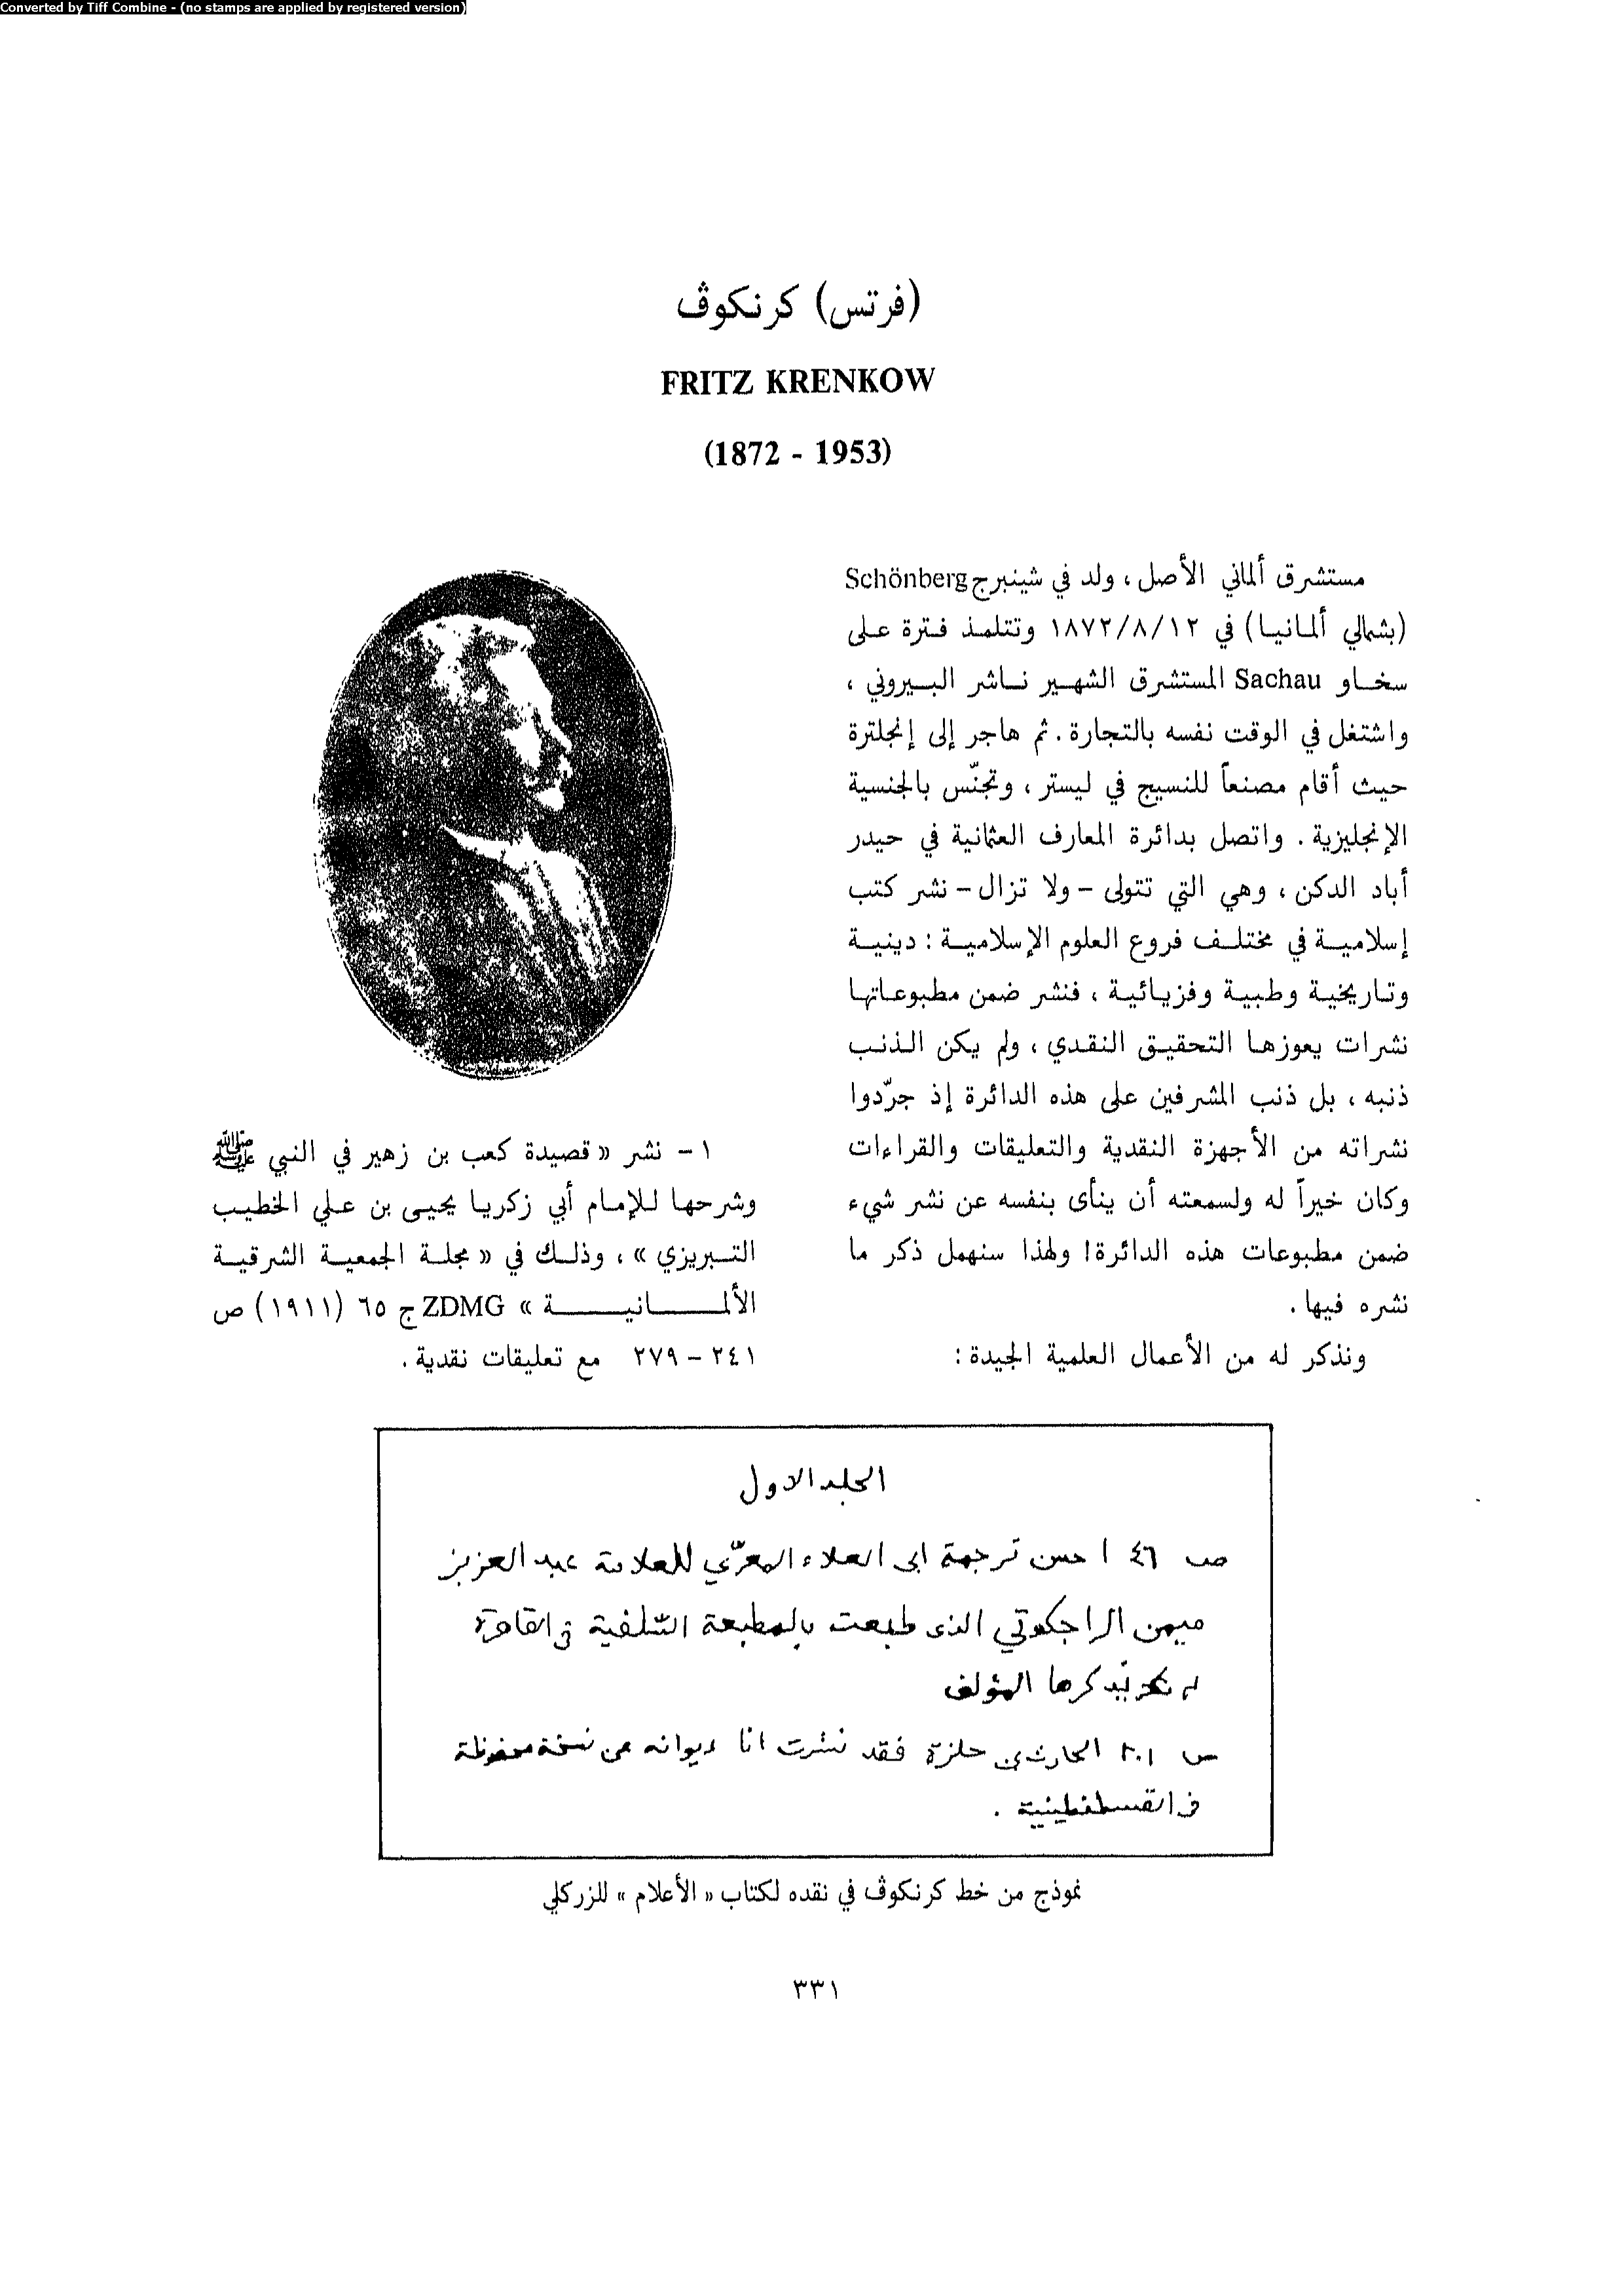 Converted by Tiff Combine - (no stamps are applied by registered version)
(فرتس) كرنكوڤ
FRITZ KRENKOW
(1872 - 1953)
مستشرق ألماني الأصل، ولد في شينبرج Schönberg
(بشمالي ألمانيا) في ١٨٧٢/٨/١٢ وتتلمذ فترة على
سخاو Sachau المستشرق الشهير ناشر البيروني ،
واشتغل في الوقت نفسه بالتجارة. ثم هاجر إلى إنجلترة
حيث أقام مصنعاً للنسيج في ليستر ، وتجنّس بالجنسية
الإنجليزية . واتصل بدائرة المعارف العثمانية في حيدر
أباد الدكن ، وهي التي تتولى - ولا تزال - نشر كتب
إسلامية في مختلف فروع العلوم الإسلامية : دينية
وتاريخية وطبية وفزيائية ، فنشر ضمن مطبوعاتها
نشرات يعوزها التحقيق النقدي ، ولم يكن الذنب
ذنبه ، بل ذنب المشرفين على هذه الدائرة إذ جرّدوا
نشراته من الأجهزة النقدية والتعليقات والقراءات
وكان خيراً له ولسمعته أن ينأى بنفسه عن نشر شيء
ضمن مطبوعات هذه الدائرة! ولهذا سنهمل ذكر ما
نشره فيها .
ونذكر له من الأعمال العلمية الجيدة :
١ - نشر « قصيدة كعب بن زهير في النبي ﷺ
وشرحها للإمام أبي زكريا يحيى بن علي الخطيب
التبريزي » ، وذلك في « مجلة الجمعية الشرقية
الألمانية » ZDMG ج ٦٥ (١٩١١) ص
٢٤١ - ٢٧٩ مع تعليقات نقدية .
المجلد الاول
ص ٤٦ احسن ترجمة ابى العلاء المعرّي للعلامة عبد العزيز
ميمن الراجكوتي الذى طبعت بالمطبعة السّلفية فى القاهرة
لم يذكرها المؤلف
ص ٢٠١ الحارث بن حلزة فقد نشرت انا ديوانه عن نسخة محفوظة
فى القسطنطينية .
نموذج من خط كرنكوڤ في نقده لكتاب « الأعلام » للزركلي
٣٣١